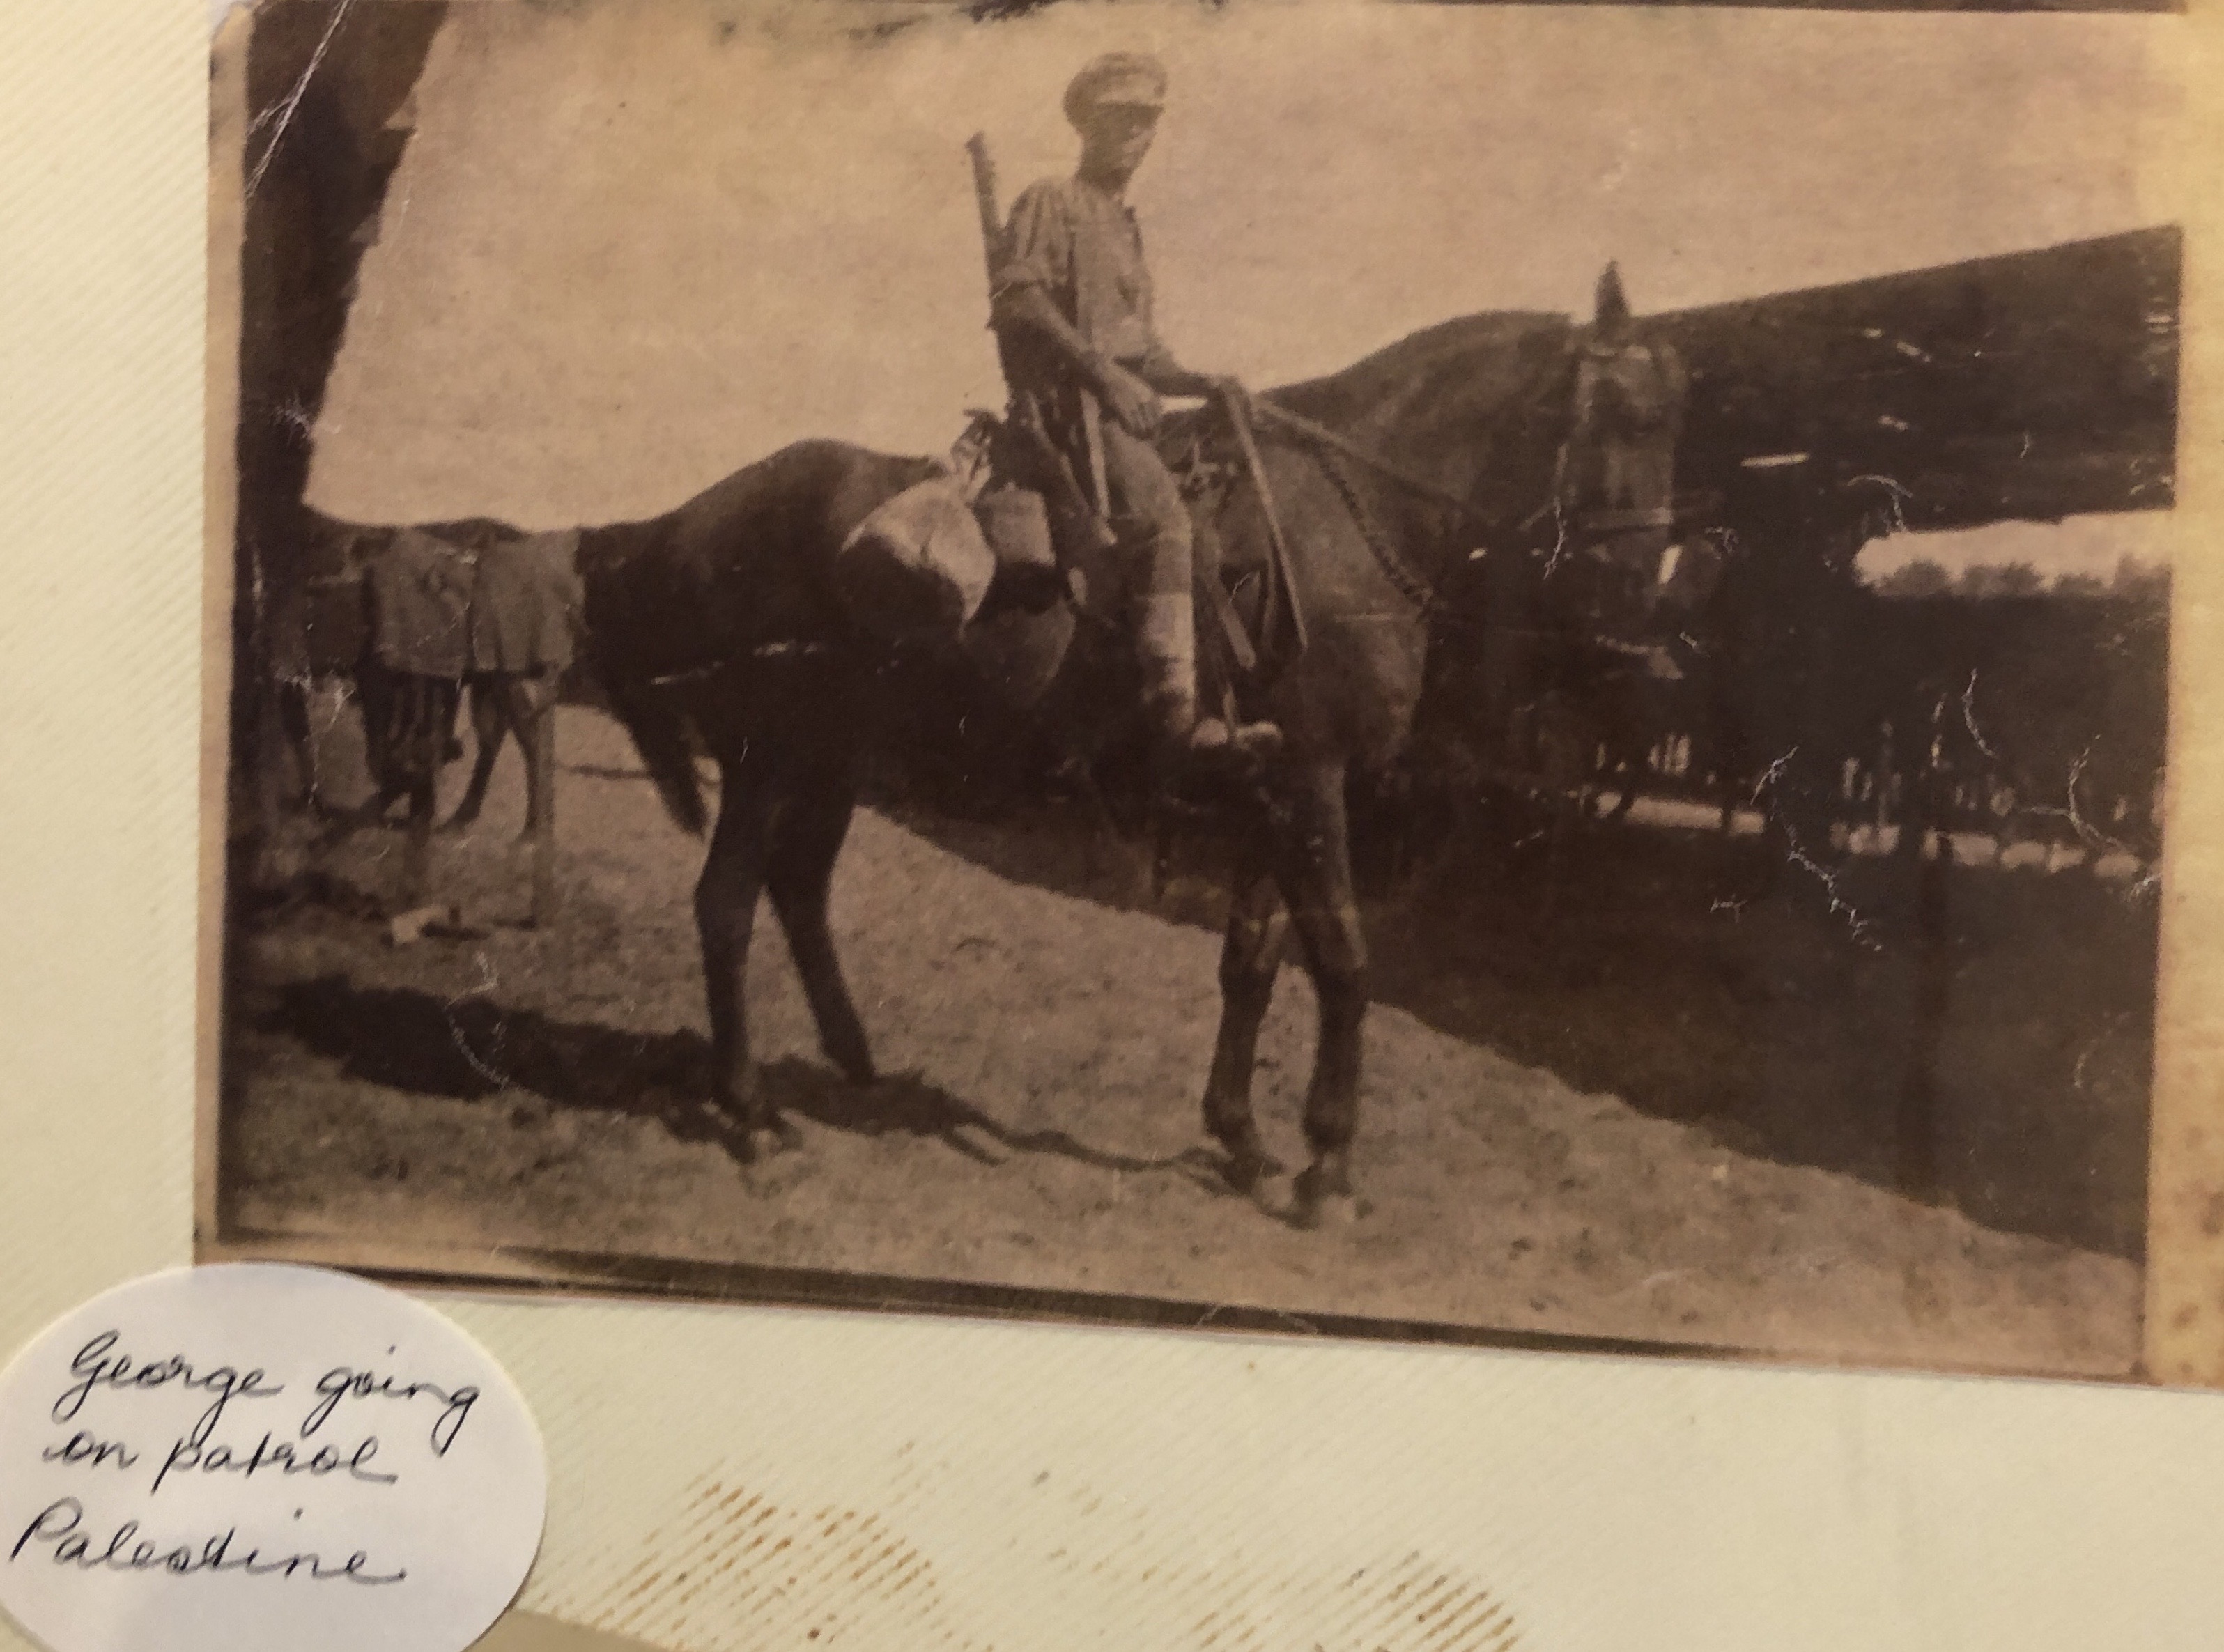 George going
on patrol
Palestine